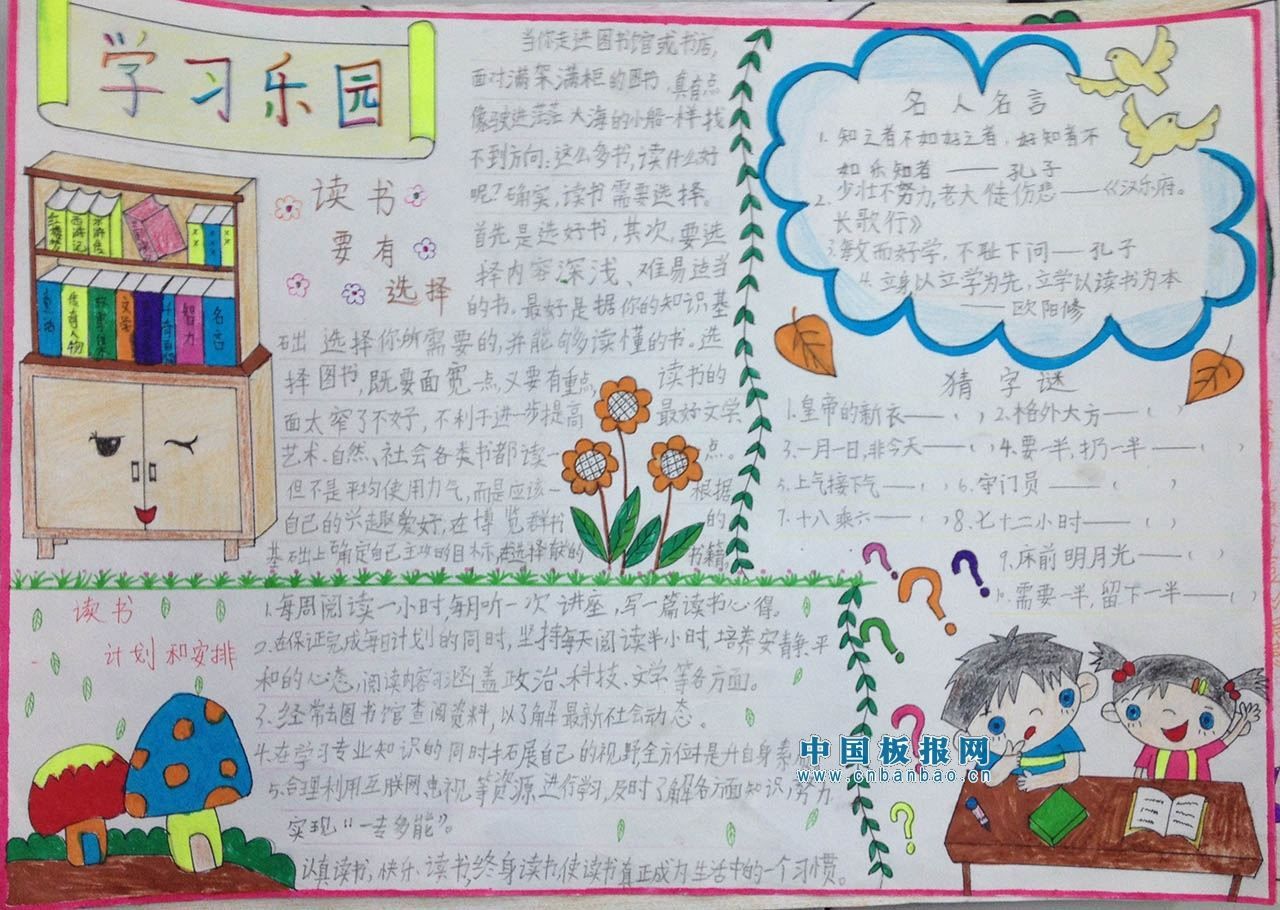 学习乐园
读书
要有
选择
当你走进图书馆或书店,
面对满架满柜的图书,真有点
像驶进茫茫大海的小船一样找
不到方向:这么多书,读什么好
呢?确实,读书需要选择。
首先是选好书,其次,要选
择内容深浅、难易适当
的书。最好是据你的知识基
础 选择你所需要的,并能够多读懂的书。选
择图书,既要面宽一点,又要有重点 读书的
面太窄了不好,不利于进一步提高 最好文学
艺术、自然、社会各类书都读一 点。
但不是平均使用力气,而是应该一 根据
自己的兴趣爱好,在博览群书 的
基础上确定自己主攻的目标,选择有的 书籍。
红楼梦
西游记
水浒传
××
××
传奇人物
文学
智力
名言
名人名言
1. 知之者不如好之者,好知者不
如乐知者——孔子
2. 少壮不努力,老大徒伤悲——《汉乐府。
长歌行》
3.敏而好学,不耻下问——孔子
4.立身以立学为先,立学以读书为本
——欧阳修
猜字谜
1.皇帝的新衣——( ) 2.格外大方——( )
3.一月一日,非今天——( ) 4.要一半,扔一半——( )
5.上气接下气——( ) 6.守门员——( )
7.十八乘六——( ) 8.七十二小时——( )
9.床前明月光——( )
10.需要一半,留下一半——( )
读书
计划和安排
1.每周阅读一小时,每月听一次讲座,写一篇读书心得。
2.在保证完成每日计划的同时,坚持每天阅读半小时,培养安静、平
和的心态,阅读内容涵盖政治、科技、文学等各方面。
3、经常去图书馆查阅资料,以了解最新社会动态。
4.在学习专业知识的同时,拓展自己的视野,全方位提升自身素
5.合理利用互联网、电视、等资源,进行学习,及时了解各方面知识,努力
实现“一专多能”。
认真读书,快乐读书,终身读书,使读书真正成为生活中的一个习惯。
中国板报网
www.cnbanbao.cn